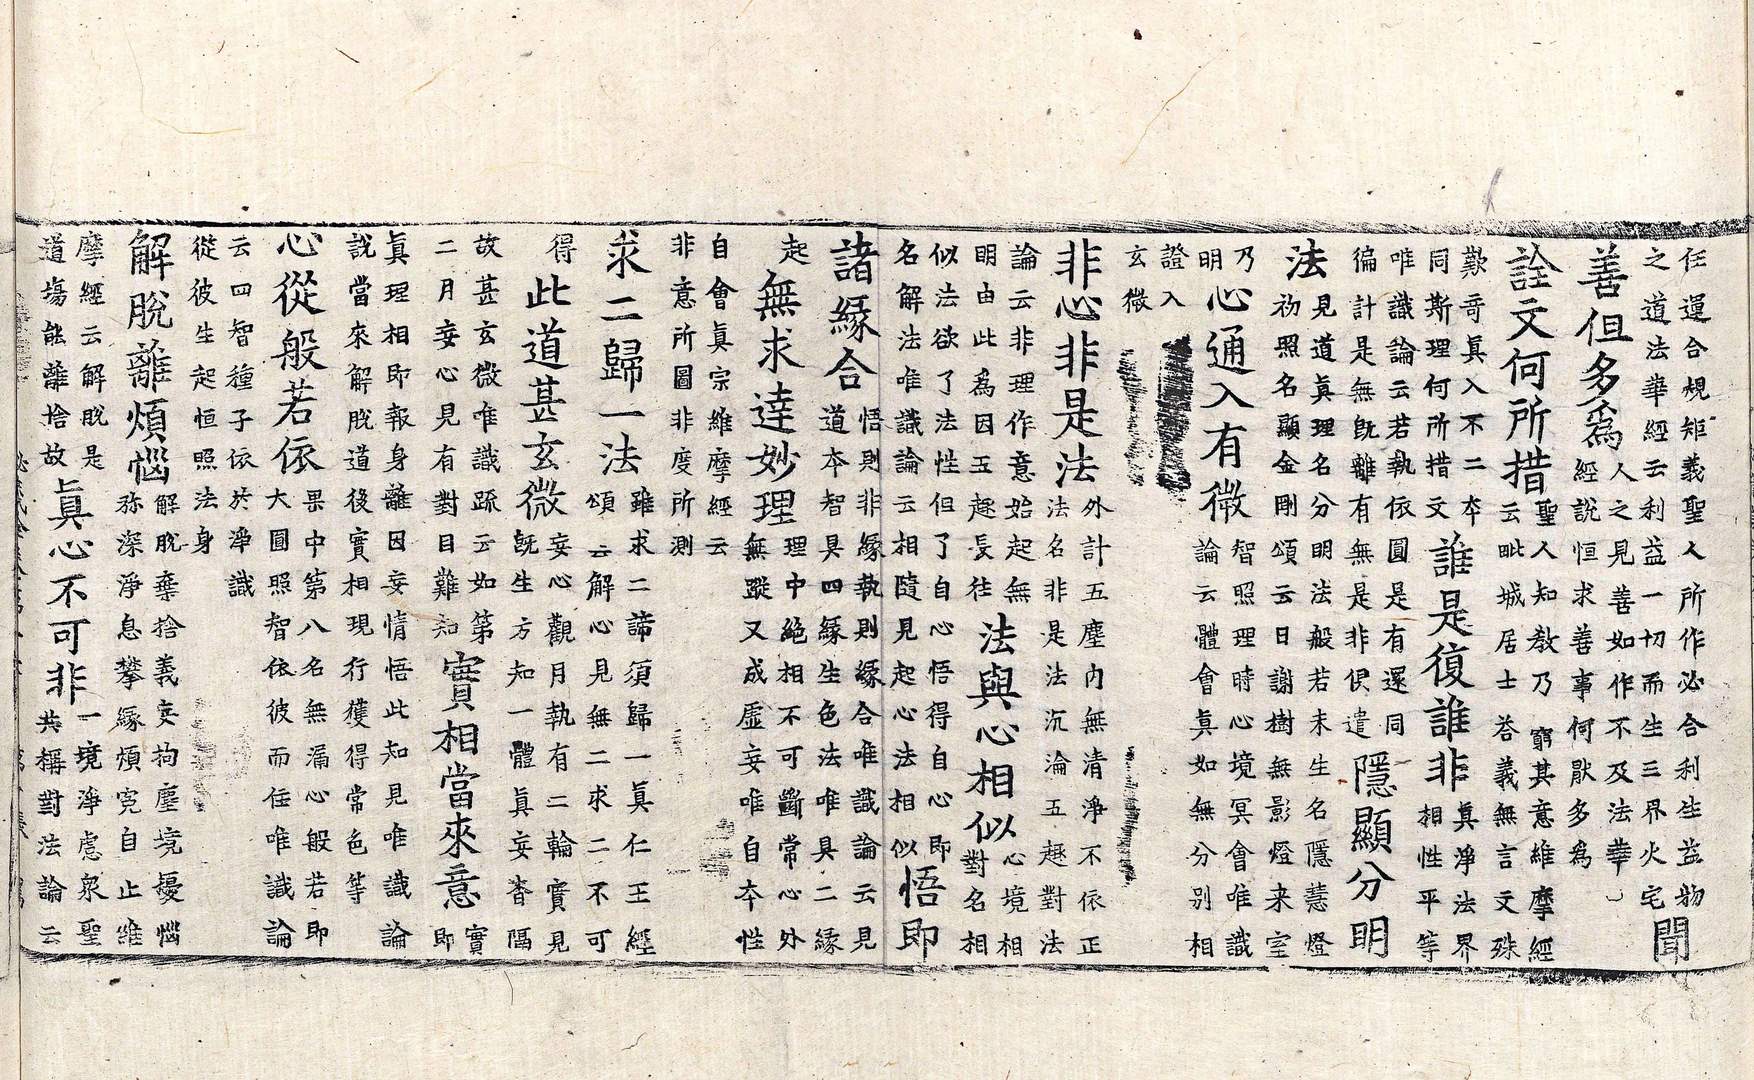 任運合規矩義聖人所作必合利生益物
之道法華經云利益一切而生三界火宅
聞
善但多爲
人之見善如作不及法華
經說恒求善事何猒多為
詮文何所措
聖人知教乃窮其意維摩經
云毗城居士荅義無言文殊
歎哥真入不二夲
同斯理何所措文
誰是復誰非
真淨法界
相性平等
唯識論云若執依圓是有還同
徧計是無旣離有無是非俱遣
隱顯分明
法
見道真理名分明法般若未生名隱慧燈
初照名顯金剛頌云日謝樹無影燈来室
乃
明
心通入有微
智照理時心境冥會唯識
論云體會真如無分別相
證入
玄微
非心非是法
外計五塵內無清淨不依正
法名非是法沉淪五趣對法
論云非理作意始起無
明由此為因五趣長往
法與心相似
心境相
對名相
似法欲了法性但了自心悟得自心即
名解法唯識論云相隨見起心法相似
悟即
諸緣合
悟則非緣執則緣合唯識論云見
道夲智具四緣生色法唯具二緣
起
無求達妙理
理中絕相不可斷常心外
無蹤又成虛妄唯自夲性
自會真宗維摩經云
非意所圖非度所測
求二歸一法
雖求二諦須歸一真仁王經
頌云解心見無二求二不可
得
此道甚玄微
妄心觀月執有二輪實見
旣生方知一體真妄杳隔
故甚玄微唯識疏云如第
二月妄心見有對目難知
實相當來意
實
即
真理相即報身離因妄情悟此知見唯識論
說當來解脫道後實相現行獲得常色等
心從般若依
果中第八名無漏心般若即
大圓照智依彼而住唯識論
云四智種子依於淨識
從彼生起恒照法身
解脫離煩惱
解脫棄捨義妄拘塵境憂惱
弥深淨息攀緣煩寃自止維
摩經云解脫是
道場能離捨故
真心不可非
一境淨慮眾聖
共稱對法論云